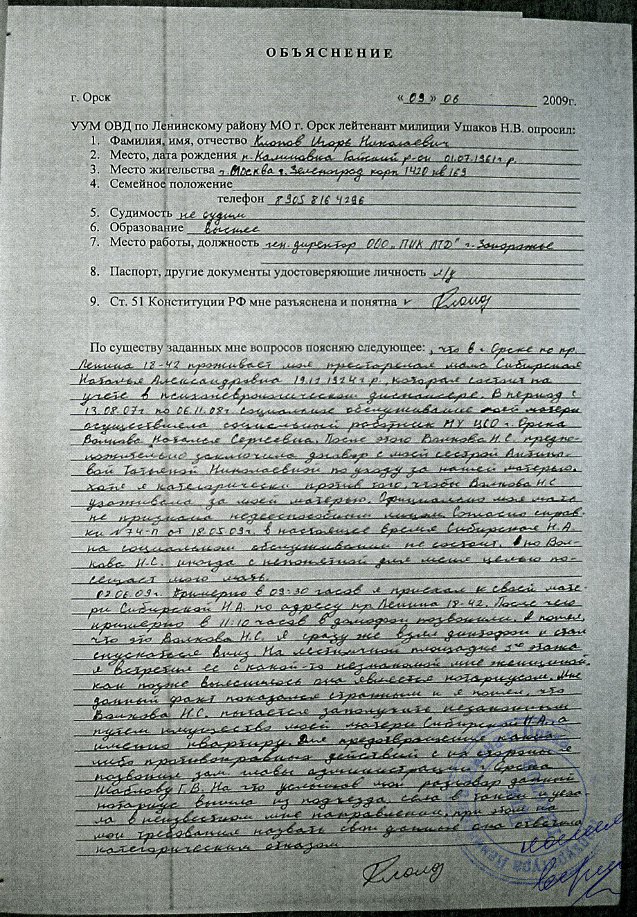 ОБЪЯСНЕНИЕ
г. Орск « 09 » 06 2009г.
УУМ ОВД по Ленинскому району МО г. Орск лейтенант милиции Ушаков Н.В. опросил:
1. Фамилия, имя, отчество Клопов Игорь Николаевич
2. Место, дата рождения п. Калиновка Гайский р-он 01.07.1961 г.р.
3. Место жительства г. Москва г. Зеленоград корп 1420 кв 169
4. Семейное положение
телефон 8 905 816 4296
5. Судимость не судим
6. Образование высшее
7. Место работы, должность ген. директор ООО „ПИК ЛТД" г.
8. Паспорт, другие документы удостоверяющие личность л/у
9. Ст. 51 Конституции РФ мне разъяснена и понятна
По существу заданных мне вопросов поясняю следующее: , что в г. Орске по пр.
Ленина 18-42 проживает моя престарелая мама Сибирская
Наталья Александровна 19.12.1924 г.р., которая состоит на
учете в психоневрологическом диспансере. В период с
13.08.07г по 06.11.08г социальное обслуживание моей матери
осуществляла социальный работник МУ ЦСО г. Орска
Волкова Наталья Сергеевна. После этого Волкова Н.С. предпо-
ложительно заключила договор с моей сестрой Антипо-
вой Татьяной Николаевной по уходу за нашей матерью.
Хотя я категорически против того, чтобы Волкова Н.С
ухаживала за моей матерью. Официально моя мать
не признана недееспособной Согласно справ-
ки №74-П от 18.05.09г. в настоящее время Сибирская Н.А.
на социальном обслуживании не состоит. но Вол-
кова Н.С. иногда с непонятной для меня целью по-
сещает мою мать.
02.06.09г. Примерно в 09:30 часов я приехал к своей мате-
ри Сибирской Н.А. по адресу пр. Ленина 18-42. После чего
примерно в 11:10 часов в домофон позвонили. Я понял,
что это Волкова Н.С. Я сразу же взял диктофон и стал
спускаться вниз. На лестничной площадке этажа
я встретил ее с какой-то незнакомой мне женщиной,
как позже выяснилось она является нотариусом. Мне
данный факт показался странным и я понял, что
Волкова Н.С. пытается заполучить незаконным
путем имущество моей матери Сибирской Н.А. а
именно квартиру. Для предотвращения каких-
либо противоправных действий с их стороны я
позвонил зам. главы администрации г. Орска
Шаблову Г.В. На что услышав мой разговор данный
нотариус вышла из подъезда, села в такси и уеха-
ла в неизвестном мне направлении, при этом на
мои требования назвать свои данные она ответила
категорическим отказом